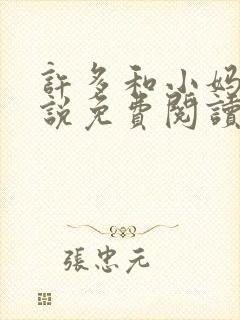 許多和小妈
說免費閱讀
張忠元